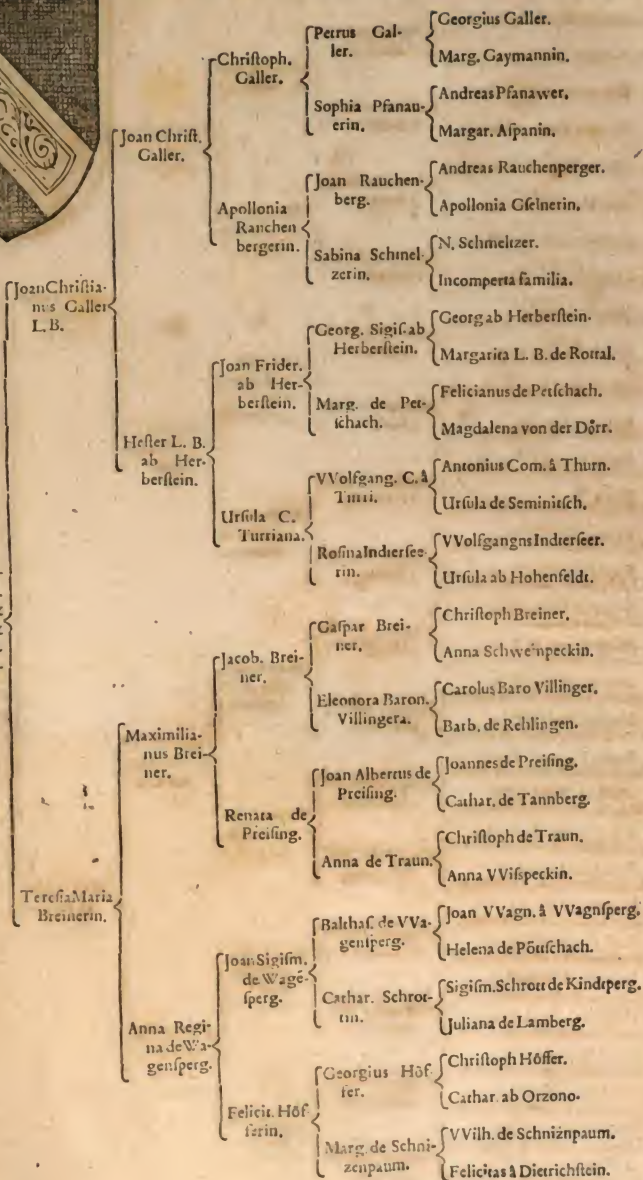 Joan Christia-
nus Galler
L. B.
Teresia Maria
Breinerin.
Joan Christ.
Galler.
Hester L. B.
ab Her-
berstein.
Maximilia-
nus Brei-
ner.
Anna Regi-
na de Wa-
gensperg.
Christoph.
Galler.
Apollonia
Rauchen
bergerin.
Joan Frider.
ab Her-
berstein.
Ursula C.
Turriana.
Jacob. Brei-
ner.
Renata de
Preising.
Joan Sigism.
de Wagē-
sperg.
Felicit. Höf-
ferin.
Petrus Gal-
ler.
Sophia Pfanau-
erin.
Joan Rauchen-
berg.
Sabina Schmel-
zerin.
Georg. Sigis. ab
Herberstein.
Marg. de Pet-
schach.
VVolfgang. C. â
Turri.
Rosina Indterfee-
rin.
Gaspar Brei-
ner.
Eleonora Baron.
Villingera.
Joan Albertus de
Preising.
Anna de Traun.
Balthas. de VVa-
gensperg.
Cathar. Schrot-
tin.
Georgius Höf-
fer.
Marg. de Schni-
zenpaum.
Georgius Galler.
Marg. Gaymannin.
Andreas Pfanawer.
Margar. Aspanin.
Andreas Rauchenperger.
Apollonia Gselnerin.
N. Schmeltzer.
Incomperta familia.
Georg ab Herberstein.
Margarita L. B. de Rottal.
Felicianus de Petschach.
Magdalena von der Dörr.
Antonius Com. â Thurn.
Ursula de Seminitsch.
VVolfgangns Indterseer.
Ursula ab Hohenfeldt.
Christoph Breiner.
Anna Schweinpeckin.
Carolus Baro Villinger.
Barb. de Rehlingen.
Joannes de Preising.
Cathar. de Tannberg.
Christoph de Traun.
Anna VVispeckin.
Joan VVagn. â VVagnsperg.
Helena de Pöttschach.
Sigism. Schrott de Kindtperg.
Juliana de Lamberg.
Christoph Höffer.
Cathar. ab Orzono.
VVilh. de Schniznpaum.
Felicitas â Dietrichstein.